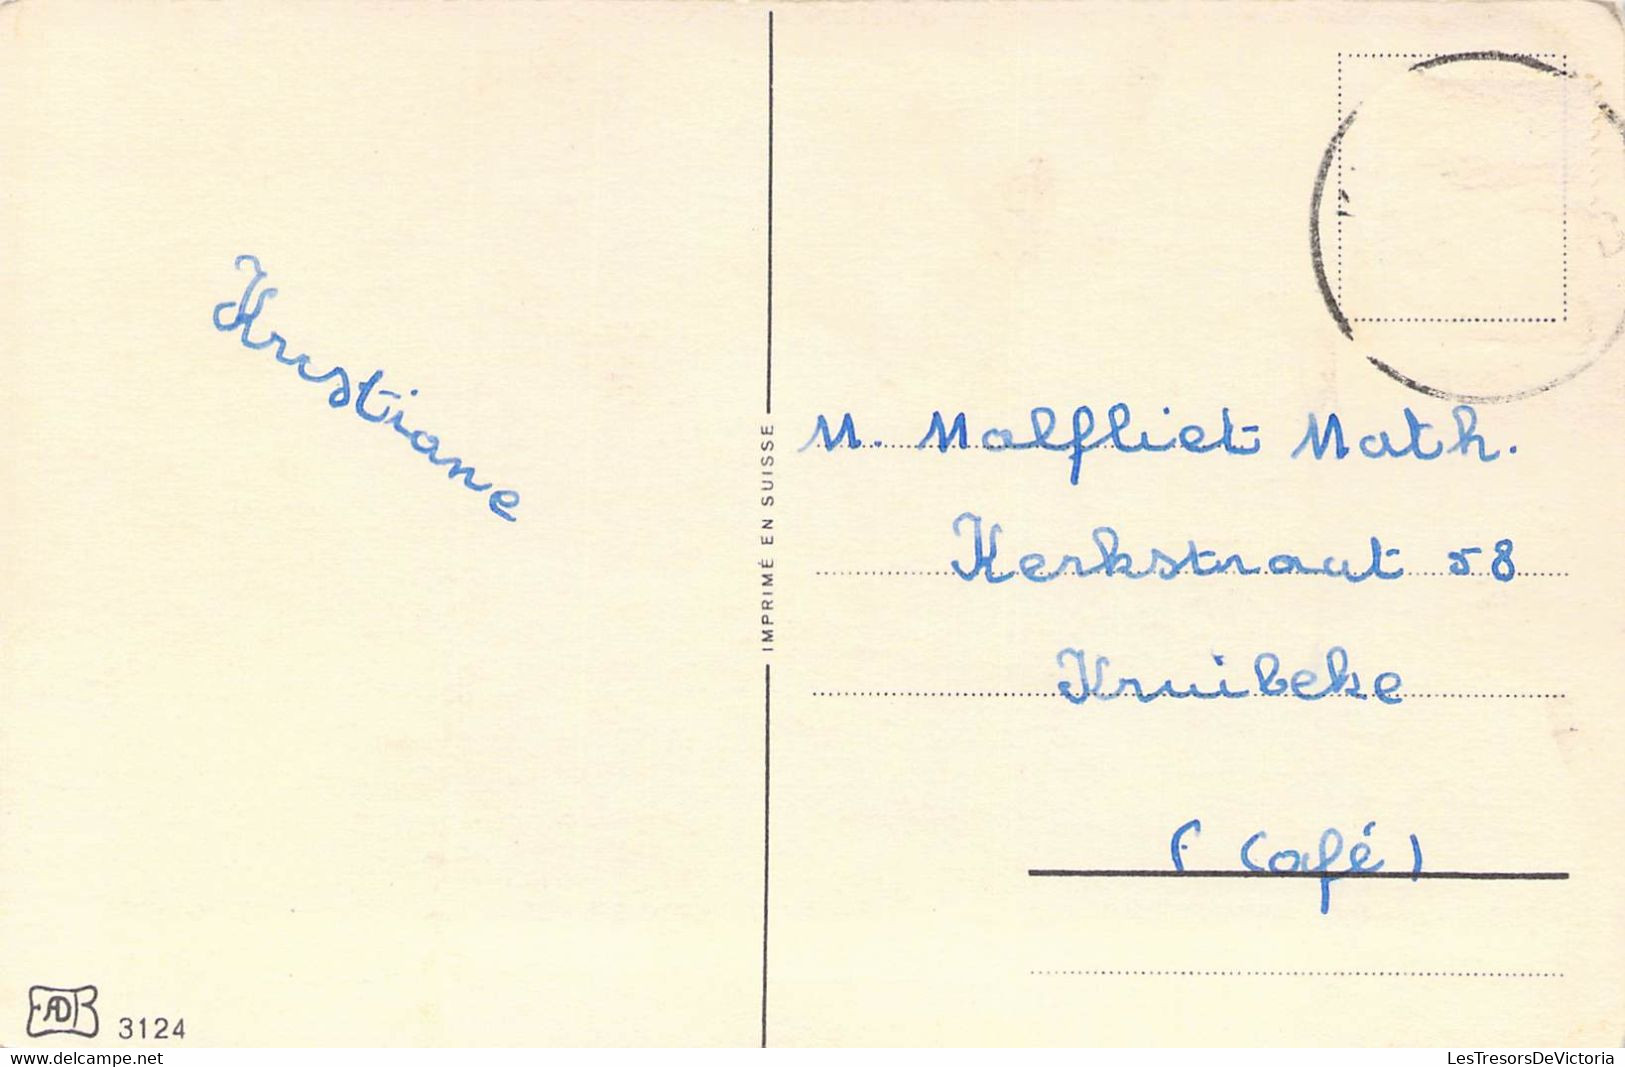 Kristiane
IMPRIMÉ EN SUISSE
M. Malfliet Math.
Kerkstraat 58
Kruibeke
( Café )
3124
www.delcampe.net
LesTresorsDeVictoria